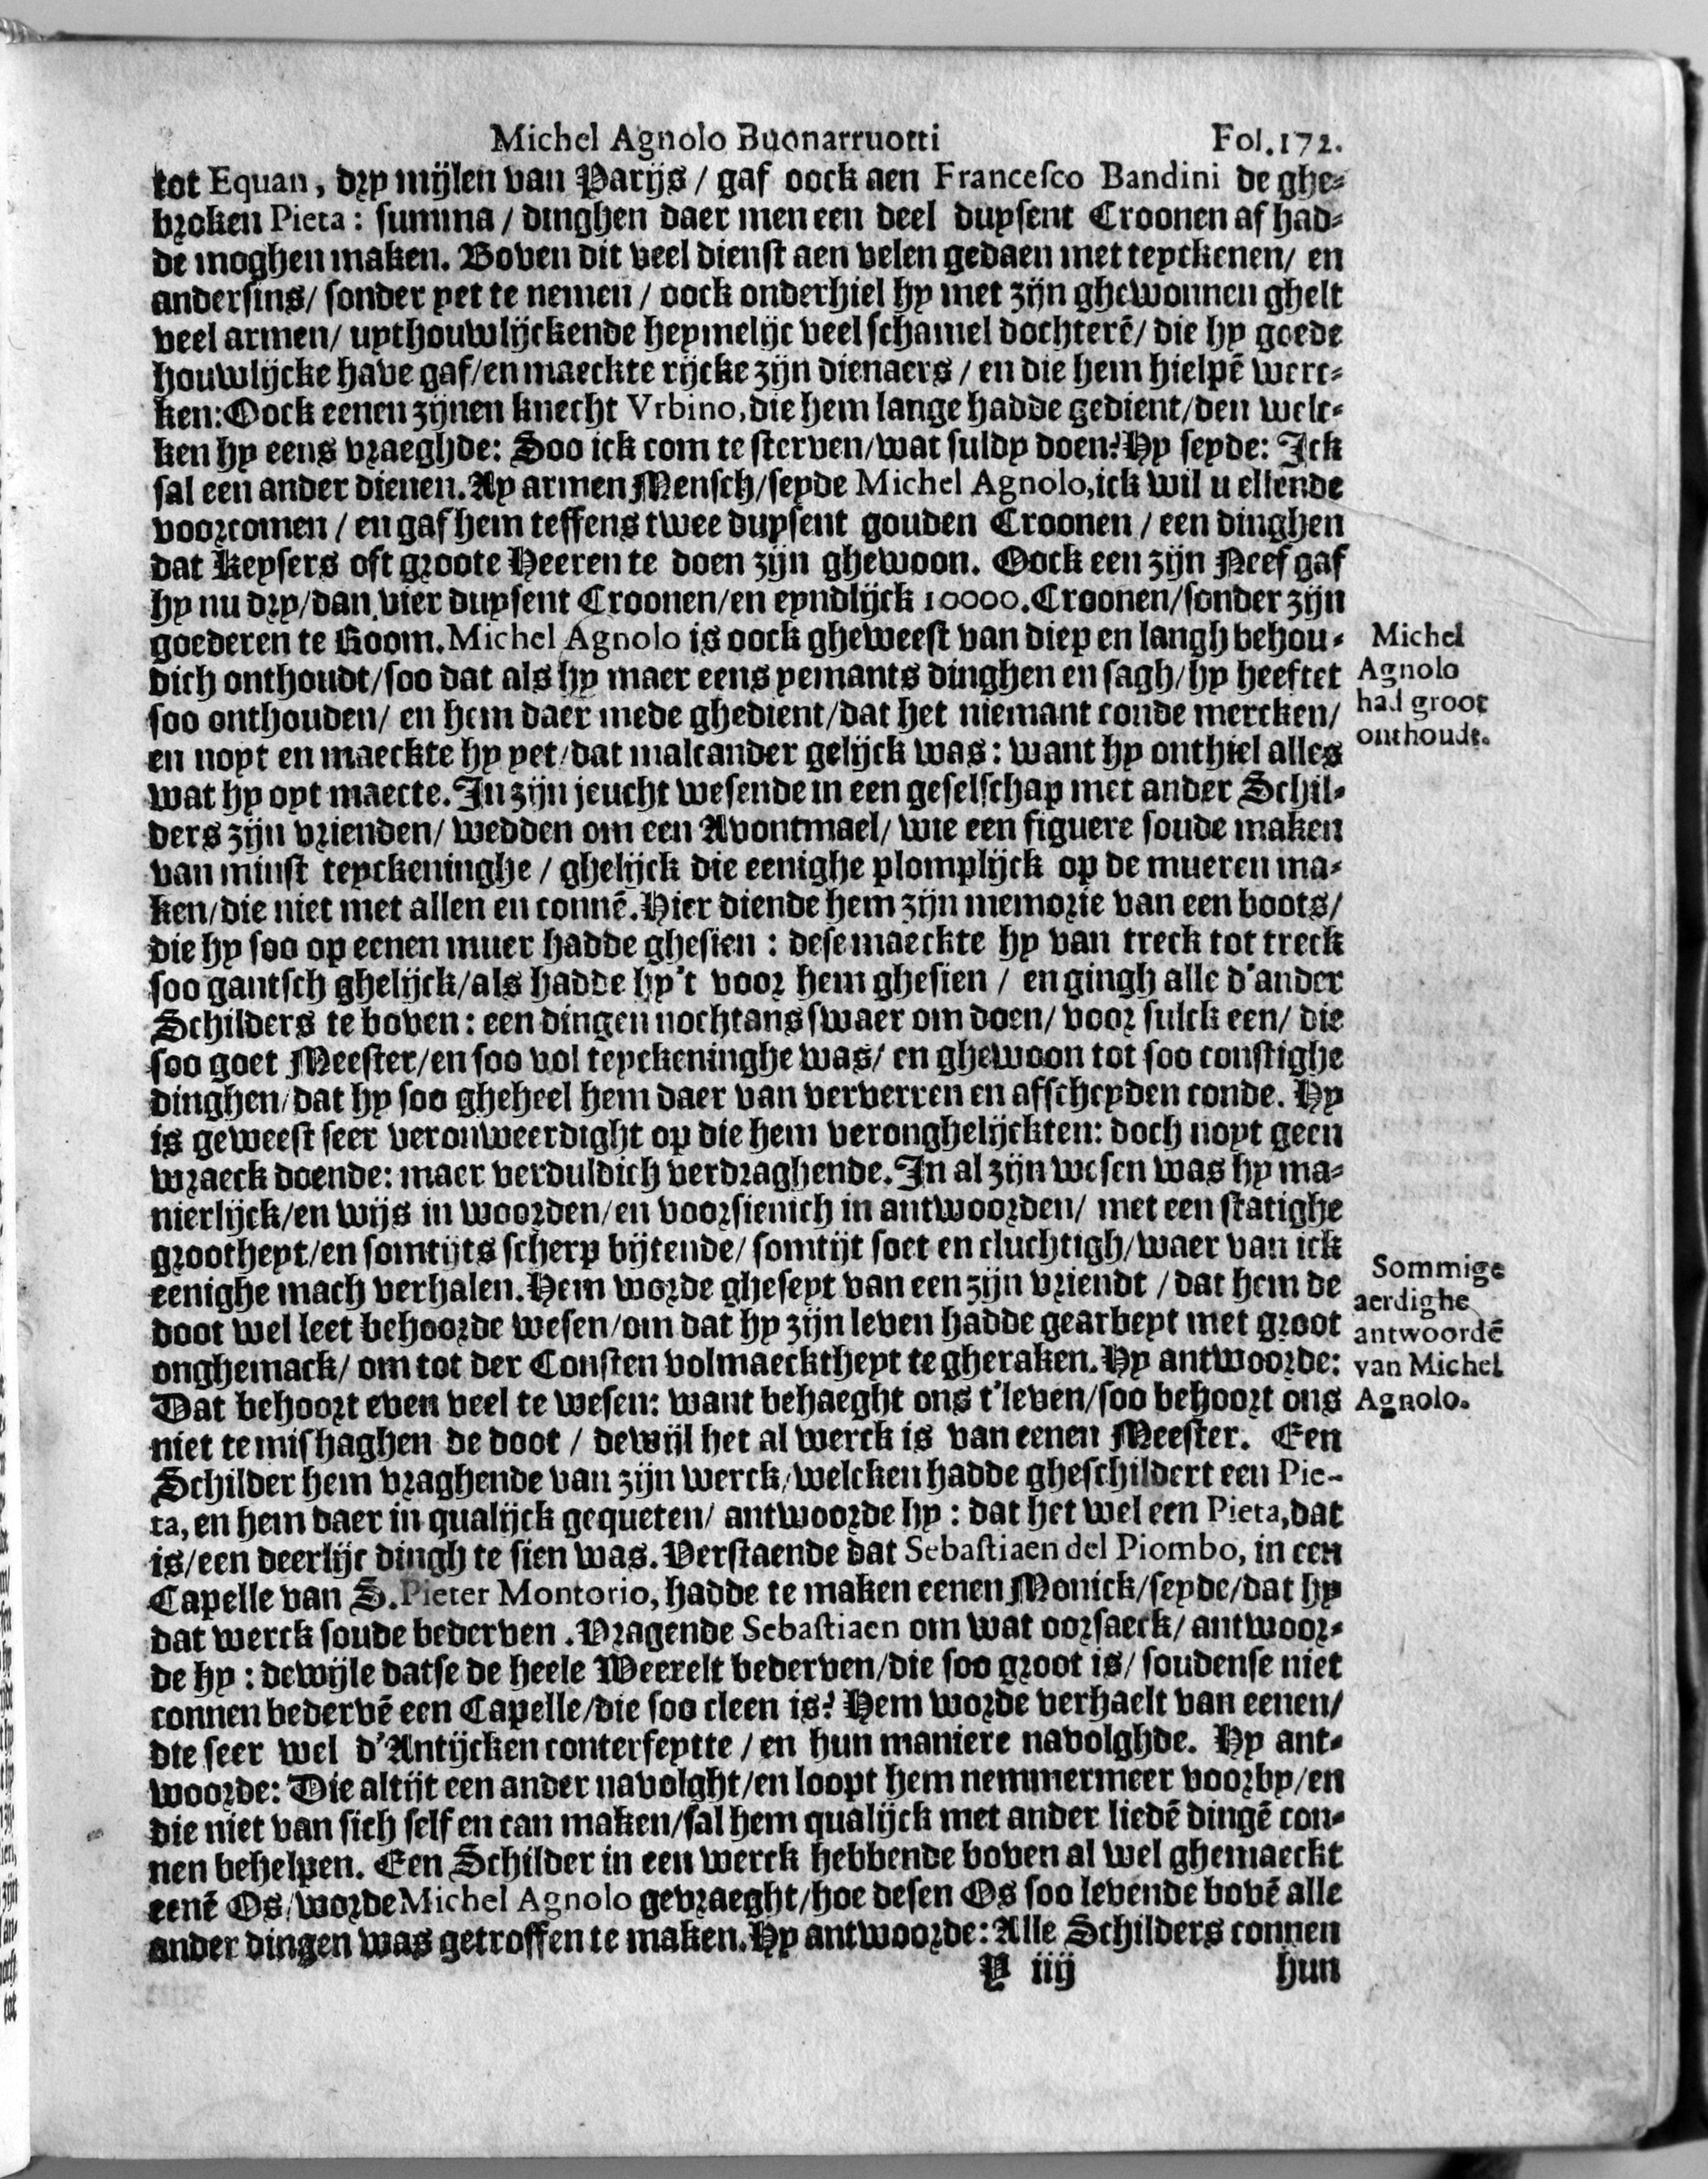 Michel Agnolo Buonarruotti Fol. 172.
tot Equan, dry mijlen van Parijs / gaf oock aen Francesco Bandini de ghe-
broken Pieta: summa / dinghen daer men een deel duysent Croonen af had-
de moghen maken. Boven dit veel dienst aen velen gedaen met teyckenen / en
andersins / sonder yet te nemen / oock onderhiel hy met zijn ghewonnen ghelt
veel armen / uythouwlijckende heymelijc veel schamel dochterē / die hy goede
houwlijcke have gaf / en maeckte rijcke zijn dienaers / en die hem hielpē werc-
ken: Oock eenen zijnen knecht Vrbino, die hem lange hadde gedient / den welc-
ken hy eens vraeghde: Soo ick com te sterven / wat suldy doen? Hy seyde: Ick
sal een ander dienen. Ay armen Mensch / seyde Michel Agnolo, ick wil u ellende
voorcomen / en gaf hem teffens twee duysent gouden Croonen / een dinghen
dat Keysers oft groote Heeren te doen zijn ghewoon. Oock een zijn Neef gaf
hy nu dry / dan vier duysent Croonen / en eyndlijck 10000. Croonen / sonder zijn
goederen te Room. Michel Agnolo is oock gheweest van diep en langh behou-
dich onthoudt / soo dat als hy maer eens yemants dinghen en sagh / hy heeftet
soo onthouden / en hem daer mede ghedient / dat het niemant conde mercken /
en noyt en maeckte hy yet / dat malcander gelijck was: want hy onthiel alles
wat hy oyt maecte. In zijn jeucht wesende in een geselschap met ander Schil-
ders zijn vrienden / wedden om een Avontmael / wie een figuere soude maken
van minst teyckeninghe / ghelijck die eenighe plomplijck op de mueren ma-
ken / die niet met allen en connē. Hier diende hem zijn memorie van een boots /
die hy soo op eenen muer hadde ghesien: dese maeckte hy van treck tot treck
soo gantsch ghelijck / als hadde hy't voor hem ghesien / en gingh alle d'ander
Schilders te boven: een dingen nochtans swaer om doen / voor sulck een / die
soo goet Meester / en soo vol teyckeninghe was / en ghewoon tot soo constighe
dinghen / dat hy soo gheheel hem daer van ververren en afscheyden conde. Hy
is geweest seer veronweerdight op die hem veronghelijckten: doch noyt geen
wraeck doende: maer verduldich verdraghende. In al zijn wesen was hy ma-
nierlijck / en wijs in woorden / en voorsienich in antwoorden / met een statighe
grootheyt / en somtijts scherp bijtende / somtijt soet en cluchtigh / waer van ick
eenighe mach verhalen. Hem worde gheseyt van een zijn vriendt / dat hem de
doot wel leet behoorde wesen / om dat hy zijn leven hadde gearbeyt met groot
onghemack / om tot der Consten volmaecktheyt te gheraken. Hy antwoorde:
Dat behoort even veel te wesen: want behaeght ons t'leven / soo behoort ons
niet te mishaghen de doot / dewijl het al werck is van eenen Meester. Een
Schilder hem vraghende van zijn werck / welcken hadde gheschildert een Pie-
ta, en hem daer in qualijck gequeten / antwoorde hy: dat het wel een Pieta, dat
is / een deerlijc dingh te sien was. Verstaende dat Sebastiaen del Piombo, in een
Capelle van S. Pieter Montorio, hadde te maken eenen Monick / seyde / dat hy
dat werck soude bederven. Vragende Sebastiaen om wat oorsaeck / antwoor-
de hy: dewijle datse de heele Weerelt bederven / die soo groot is / soudense niet
connen bedervē een Capelle / die soo cleen is? Hem worde verhaelt van eenen /
die seer wel d'Antijcken conterfeytte / en hun maniere navolghde. Hy ant-
woorde: Die altijt een ander navolght / en loopt hem nemmermeer voorby / en
die niet van sich self en can maken / sal hem qualijck met ander liedē dingē con-
nen behelpen. Een Schilder in een werck hebbende boven al wel ghemaeckt
eenē Os / worde Michel Agnolo gevraeght / hoe desen Os soo levende bovē alle
ander dingen was getroffen te maken. Hy antwoorde: Alle Schilders connen
Y iiij hun
Michel
Agnolo
had groot
onthoudt.
Sommige
aerdighe
antwoordē
van Michel
Agnolo.